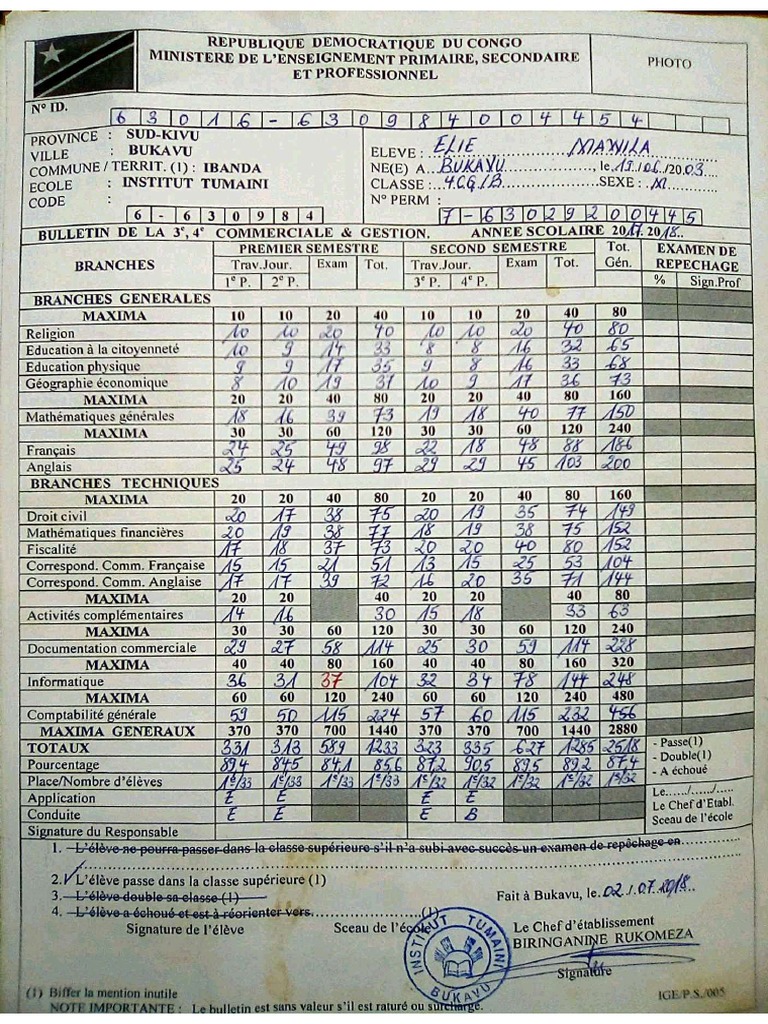 REPUBLIQUE DEMOCRATIQUE DU CONGO
MINISTERE DE L'ENSEIGNEMENT PRIMAIRE, SECONDAIRE
ET PROFESSIONNEL
PHOTO
N° ID.
6 3 0 1 6 - 6 3 0 9 8 4 0 0 4 4 5 4
PROVINCE : SUD-KIVU
VILLE : BUKAVU
COMMUNE / TERRIT. (1) : IBANDA
ECOLE : INSTITUT TUMAINI
CODE :
6 - 6 3 0 9 8 4
ELEVE : ELIE MAWILA
NE(E) A.. BUKAVU, le 19/06/2003
CLASSE : 4CG/B SEXE : M
N° PERM :
7 - 6 3 0 2 9 2 0 0 4 4 5
BULLETIN DE LA 3e, 4e COMMERCIALE & GESTION. ANNEE SCOLAIRE 2017.2018..
BRANCHES PREMIER SEMESTRE SECOND SEMESTRE Tot. Gén. EXAMEN DE REPECHAGE
Trav.Jour. Exam Tot. Trav.Jour. Exam Tot.
1e P. 2e P. 3e P. 4e P. % Sign.Prof
BRANCHES GENERALES
MAXIMA 10 10 20 40 10 10 20 40 80
Religion 10 10 20 40 10 10 20 40 80
Education à la citoyenneté 10 9 14 33 8 8 16 32 65
Education physique 9 9 17 35 9 8 16 33 68
Géographie économique 8 10 19 37 10 9 17 36 73
MAXIMA 20 20 40 80 20 20 40 80 160
Mathématiques générales 18 16 39 73 19 18 40 77 150
MAXIMA 30 30 60 120 30 30 60 120 240
Français 24 25 49 98 22 18 48 88 186
Anglais 25 24 48 97 29 29 45 103 200
BRANCHES TECHNIQUES
MAXIMA 20 20 40 80 20 20 40 80 160
Droit civil 20 17 38 75 20 19 35 74 149
Mathématiques financières 20 19 38 77 18 19 38 75 152
Fiscalité 17 18 37 73 20 20 40 80 152
Correspond. Comm. Française 15 15 21 51 13 15 25 53 104
Correspond. Comm. Anglaise 17 17 39 72 16 20 35 71 144
MAXIMA 20 20 40 20 20 40 80
Activités complémentaires 14 16 30 15 18 33 63
MAXIMA 30 30 60 120 30 30 60 120 240
Documentation commerciale 29 27 58 114 25 30 59 114 228
MAXIMA 40 40 80 160 40 40 80 160 320
Informatique 36 31 37 104 32 34 78 144 248
MAXIMA 60 60 120 240 60 60 120 240 480
Comptabilité générale 59 50 115 224 57 60 115 232 456
MAXIMA GENERAUX 370 370 700 1440 370 370 700 1440 2880
TOTAUX 331 313 589 1233 323 335 627 1285 2518
Pourcentage 89,4 84,5 84,1 85,6 87,2 90,5 89,5 89,2 87,4
Place/Nombre d'élèves 1e/33 1e/33 1e/33 1e/33 1e/32 1e/32 1e/32 1e/32 1e/32
Application E E E E
Conduite E E E B
Signature du Responsable
- Passe(1)
- Double(1)
- A échoué
Le....../....../......
Le Chef d'Etabl.
Sceau de l'école
1. - L'élève ne pourra passer dans la classe supérieure s'il n'a subi avec succès un examen de repêchage en
2. L'élève passe dans la classe supérieure (1)
3. - L'élève double sa classe (1)
4. - L'élève a échoué et est à réorienter vers (1)
Fait à Bukavu, le. 02/.07.2018..
Signature de l'élève Sceau de l'école
Le Chef d'établissement
BIRINGANINE RUKOMEZA
Signature
INSTITUT TUMAINI
BUKAVU
(1) Biffer la mention inutile
IGE/P.S./005
NOTE IMPORTANTE : Le bulletin est sans valeur s'il est raturé ou surchargé.